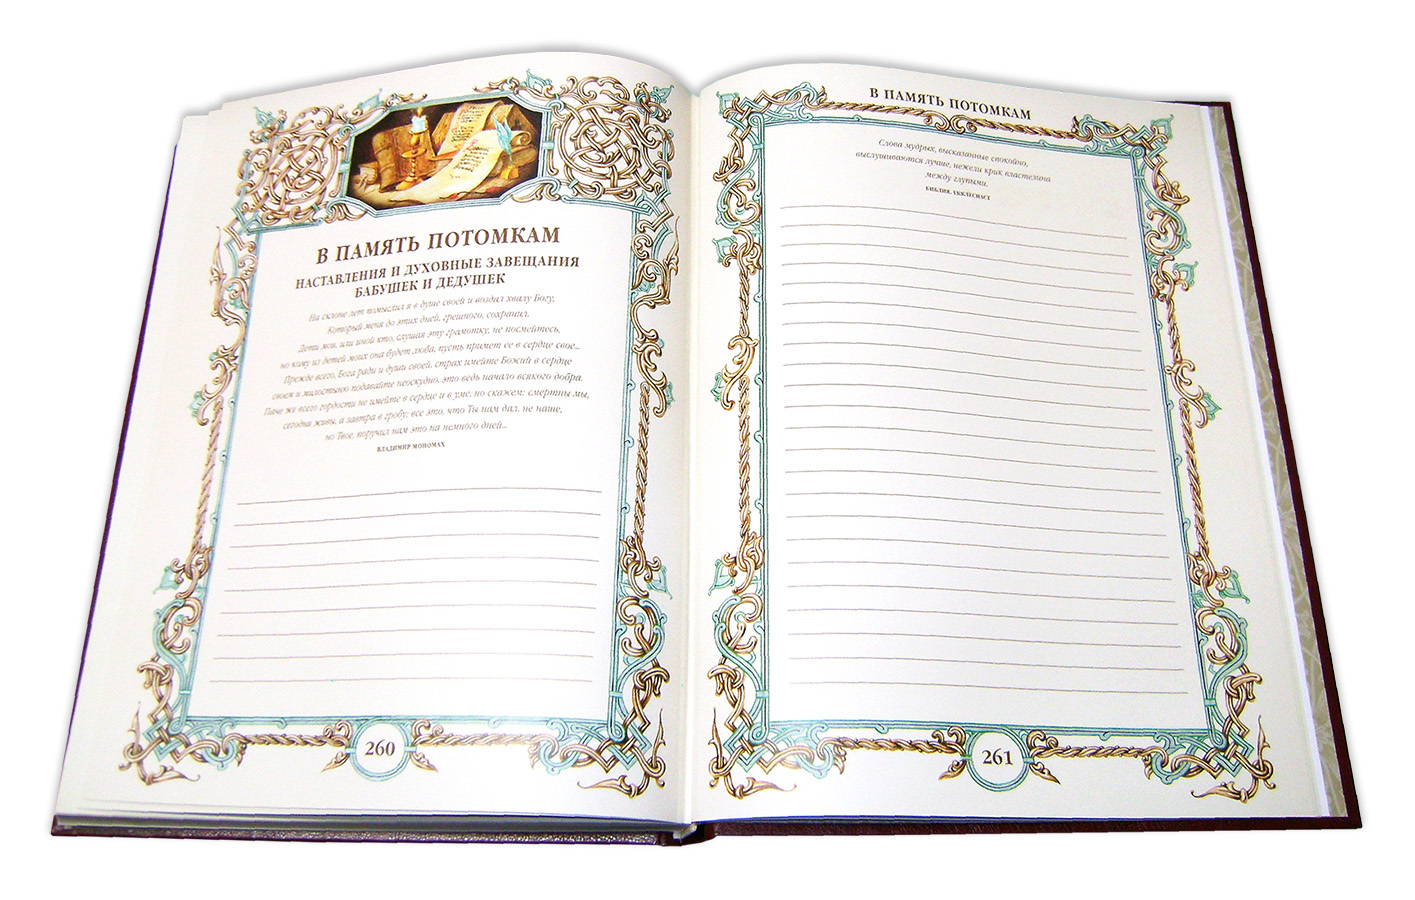 В ПАМЯТЬ ПОТОМКАМ
НАСТАВЛЕНИЯ И ДУХОВНЫЕ ЗАВЕЩАНИЯ
БАБУШЕК И ДЕДУШЕК
На склоне лет помыслил я в душе своей и воздал хвалу Богу,
Который меня до этих дней, грешного, сохранил.
Дети мои, или иной кто, слушая эту грамотку, не посмейтесь,
но кому из детей моих она будет люба, пусть примет ее в сердце свое...
Прежде всего, Бога ради и души своей, страх имейте Божий в сердце
своем и милостыню подавайте неоскудно, это ведь начало всякого добра.
Паче же всего гордости не имейте в сердце и в уме, но скажем: смертны мы,
сегодня живы, а завтра в гробу; все это, что Ты нам дал, не наше,
но Твое, поручил нам это на немного дней...
ВЛАДИМИР МОНОМАХ
260
В ПАМЯТЬ ПОТОМКАМ
Слова мудрых, высказанные спокойно,
выслушиваются лучше, нежели крик властелина
между глупыми.
БИБЛИЯ. ЕККЛЕСИАСТ
261